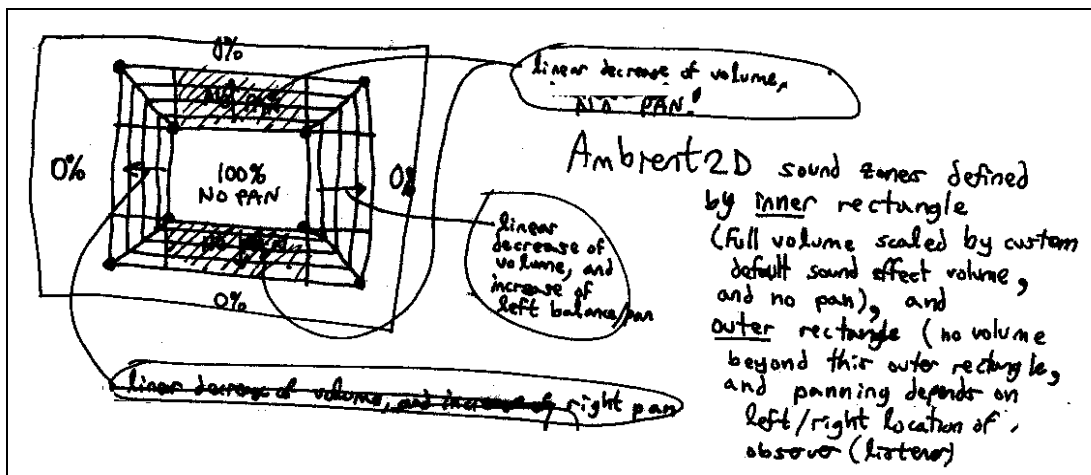 0%
NO PAN
0%
100%
NO PAN
0%
NO PAN
0%
linear decrease of volume,
NO PAN!
linear
decrease of
volume, and
increase of
left balance/pan
linear decrease of volume, and increase of right pan
Ambient2D sound zones defined
by inner rectangle
(full volume scaled by custom
default sound effect volume,
and no pan), and
outer rectangle (no volume
beyond this outer rectangle,
and panning depends on
left/right location of
observer (listener)